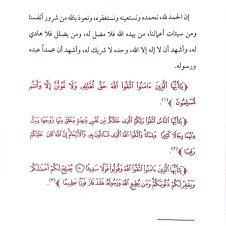 إن الحمد لله، نحمده ونستعينه ونستغفره، ونعوذ بالله من شرور أنفسنا
ومن سيئات أعمالنا، من يهده الله فلا مضل له، ومن يضلل فلا هادي
له، وأشهد أن لا إله إلا الله، وحده لا شريك له، وأشهد أن محمداً عبده
ورسوله.
﴿يَٰٓأَيُّهَا ٱلَّذِينَ ءَامَنُوا۟ ٱتَّقُوا۟ ٱللَّهَ حَقَّ تُقَاتِهِۦ وَلَا تَمُوتُنَّ إِلَّا وَأَنتُم
مُّسْلِمُونَ﴾(١).
﴿يَٰٓأَيُّهَا ٱلنَّاسُ ٱتَّقُوا۟ رَبَّكُمُ ٱلَّذِى خَلَقَكُم مِّن نَّفْسٍ وَٰحِدَةٍ وَخَلَقَ مِنْهَا زَوْجَهَا وَبَثَّ
مِنْهُمَا رِجَالًا كَثِيرًا وَنِسَآءً وَٱتَّقُوا۟ ٱللَّهَ ٱلَّذِى تَسَآءَلُونَ بِهِۦ وَٱلْأَرْحَامَ إِنَّ ٱللَّهَ كَانَ عَلَيْكُمْ
رَقِيبًا﴾(٢).
﴿يَٰٓأَيُّهَا ٱلَّذِينَ ءَامَنُوا۟ ٱتَّقُوا۟ ٱللَّهَ وَقُولُوا۟ قَوْلًا سَدِيدًا ۝ يُصْلِحْ لَكُمْ أَعْمَٰلَكُمْ
وَيَغْفِرْ لَكُمْ ذُنُوبَكُمْ وَمَن يُطِعِ ٱللَّهَ وَرَسُولَهُۥ فَقَدْ فَازَ فَوْزًا عَظِيمًا﴾(٣).